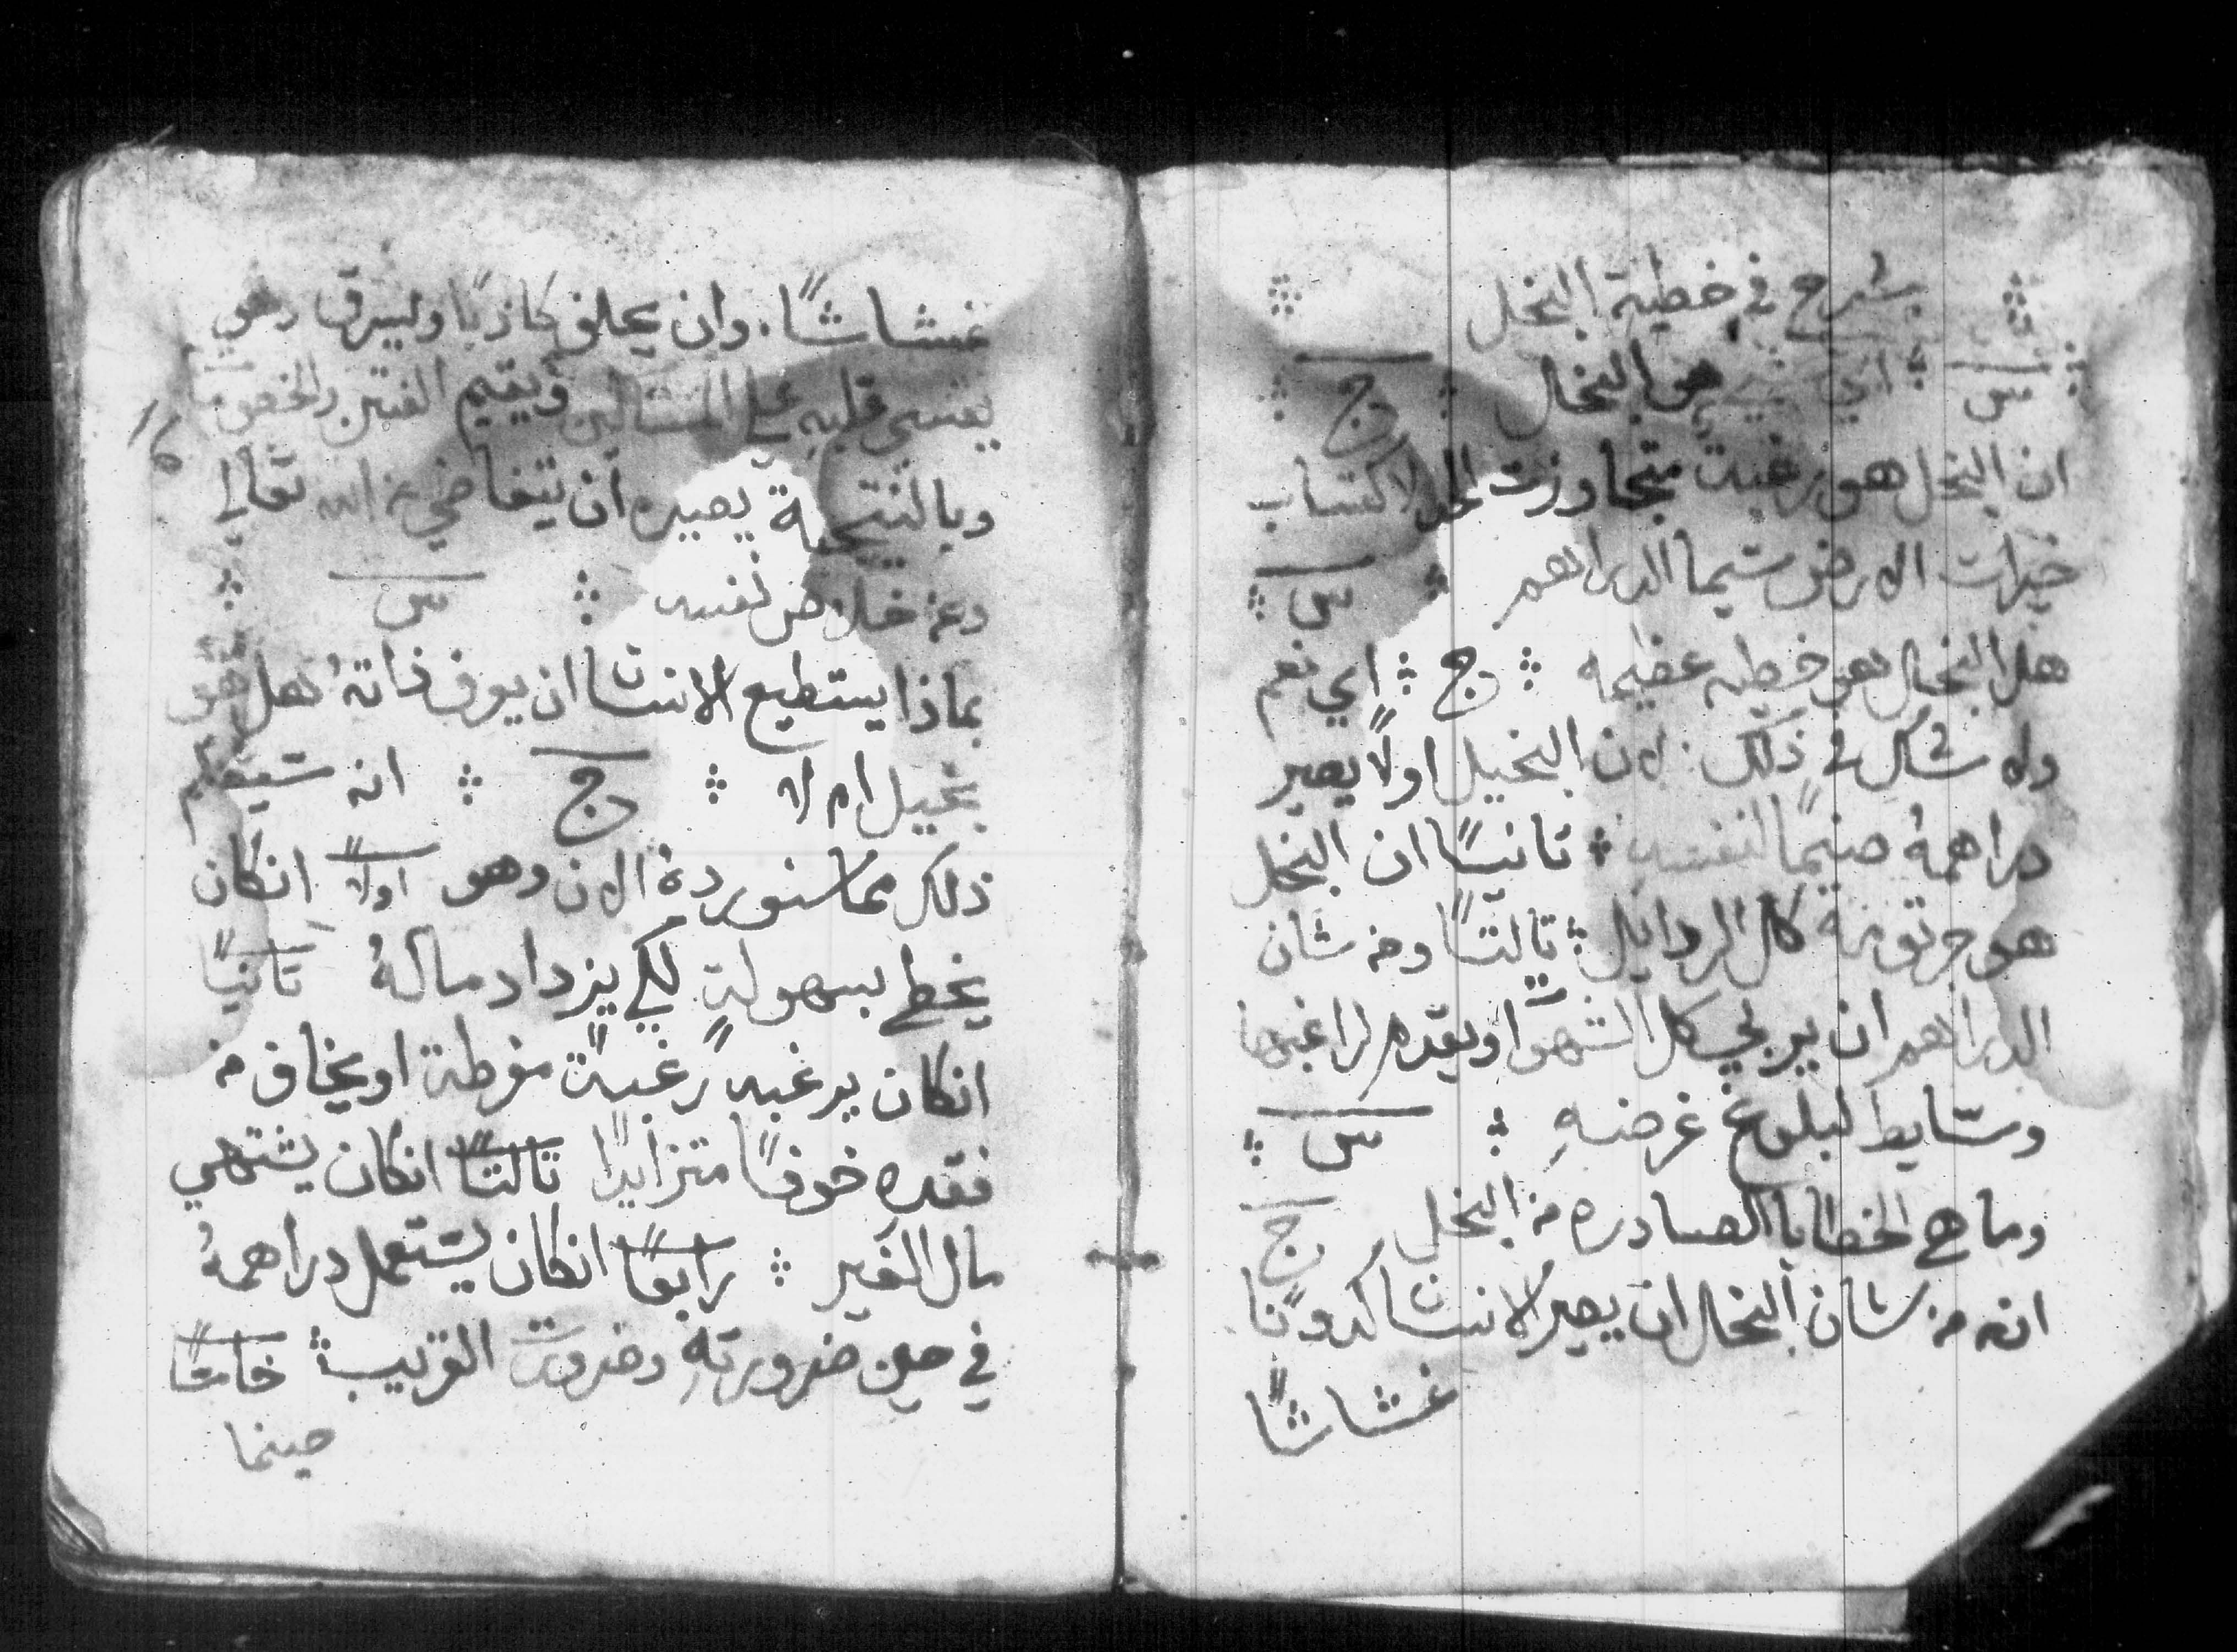 يشرح في خطية البخل
س اي شي هو البخل ج
ان البخل هو رغبة متجاوزت الحد لاكتساب
خيرات الارض سيما الدراهم س
هل البخل هو خطيه عظيمه ج اي نعم
ولا شك في ذلك لان البخيل اولًا يصير
دراهمهُ صنيمًا لنفسه تانيًا ان البخل
هو جرتومة كل الردايل تالتًا ومن شان
الدراهم ان يربي كل الشهوات ويقدم لراغبها
وسايط لبلوغ غرضهِ س
وما هي الخطايا الصادره من البخل ج
انه من شان البخل ان يصير الانسان كدوبًا
غشاشًا
غشاشًا وان يحلف كاذبًا وليسرق وهو
يقسى قلبه على المساكين ويقيم الفتن والخصومات
وبالنتيجة يصيره ان يتغاضي عن الله تعالي
وعن خلاص نفسه س
بماذا يستطيع الانسان ان يعرف ذاتهُ هل هو
بخيل ام لا ج انه سيعلم
ذلك مما سنورده الان وهو اولًا انكان
يخطي بسهولة لكي يزداد مالهُ تانيًا
انكان يرغبه رغبةً مفرطة او يخاف من
فقده خوفًا متزايدًا تالتًا انكان يشتهي
مال الغير رابعًا انكان يستعمل دراهمهُ
في حين ضرورتهِ وضروت القريب خامسًا
حينما